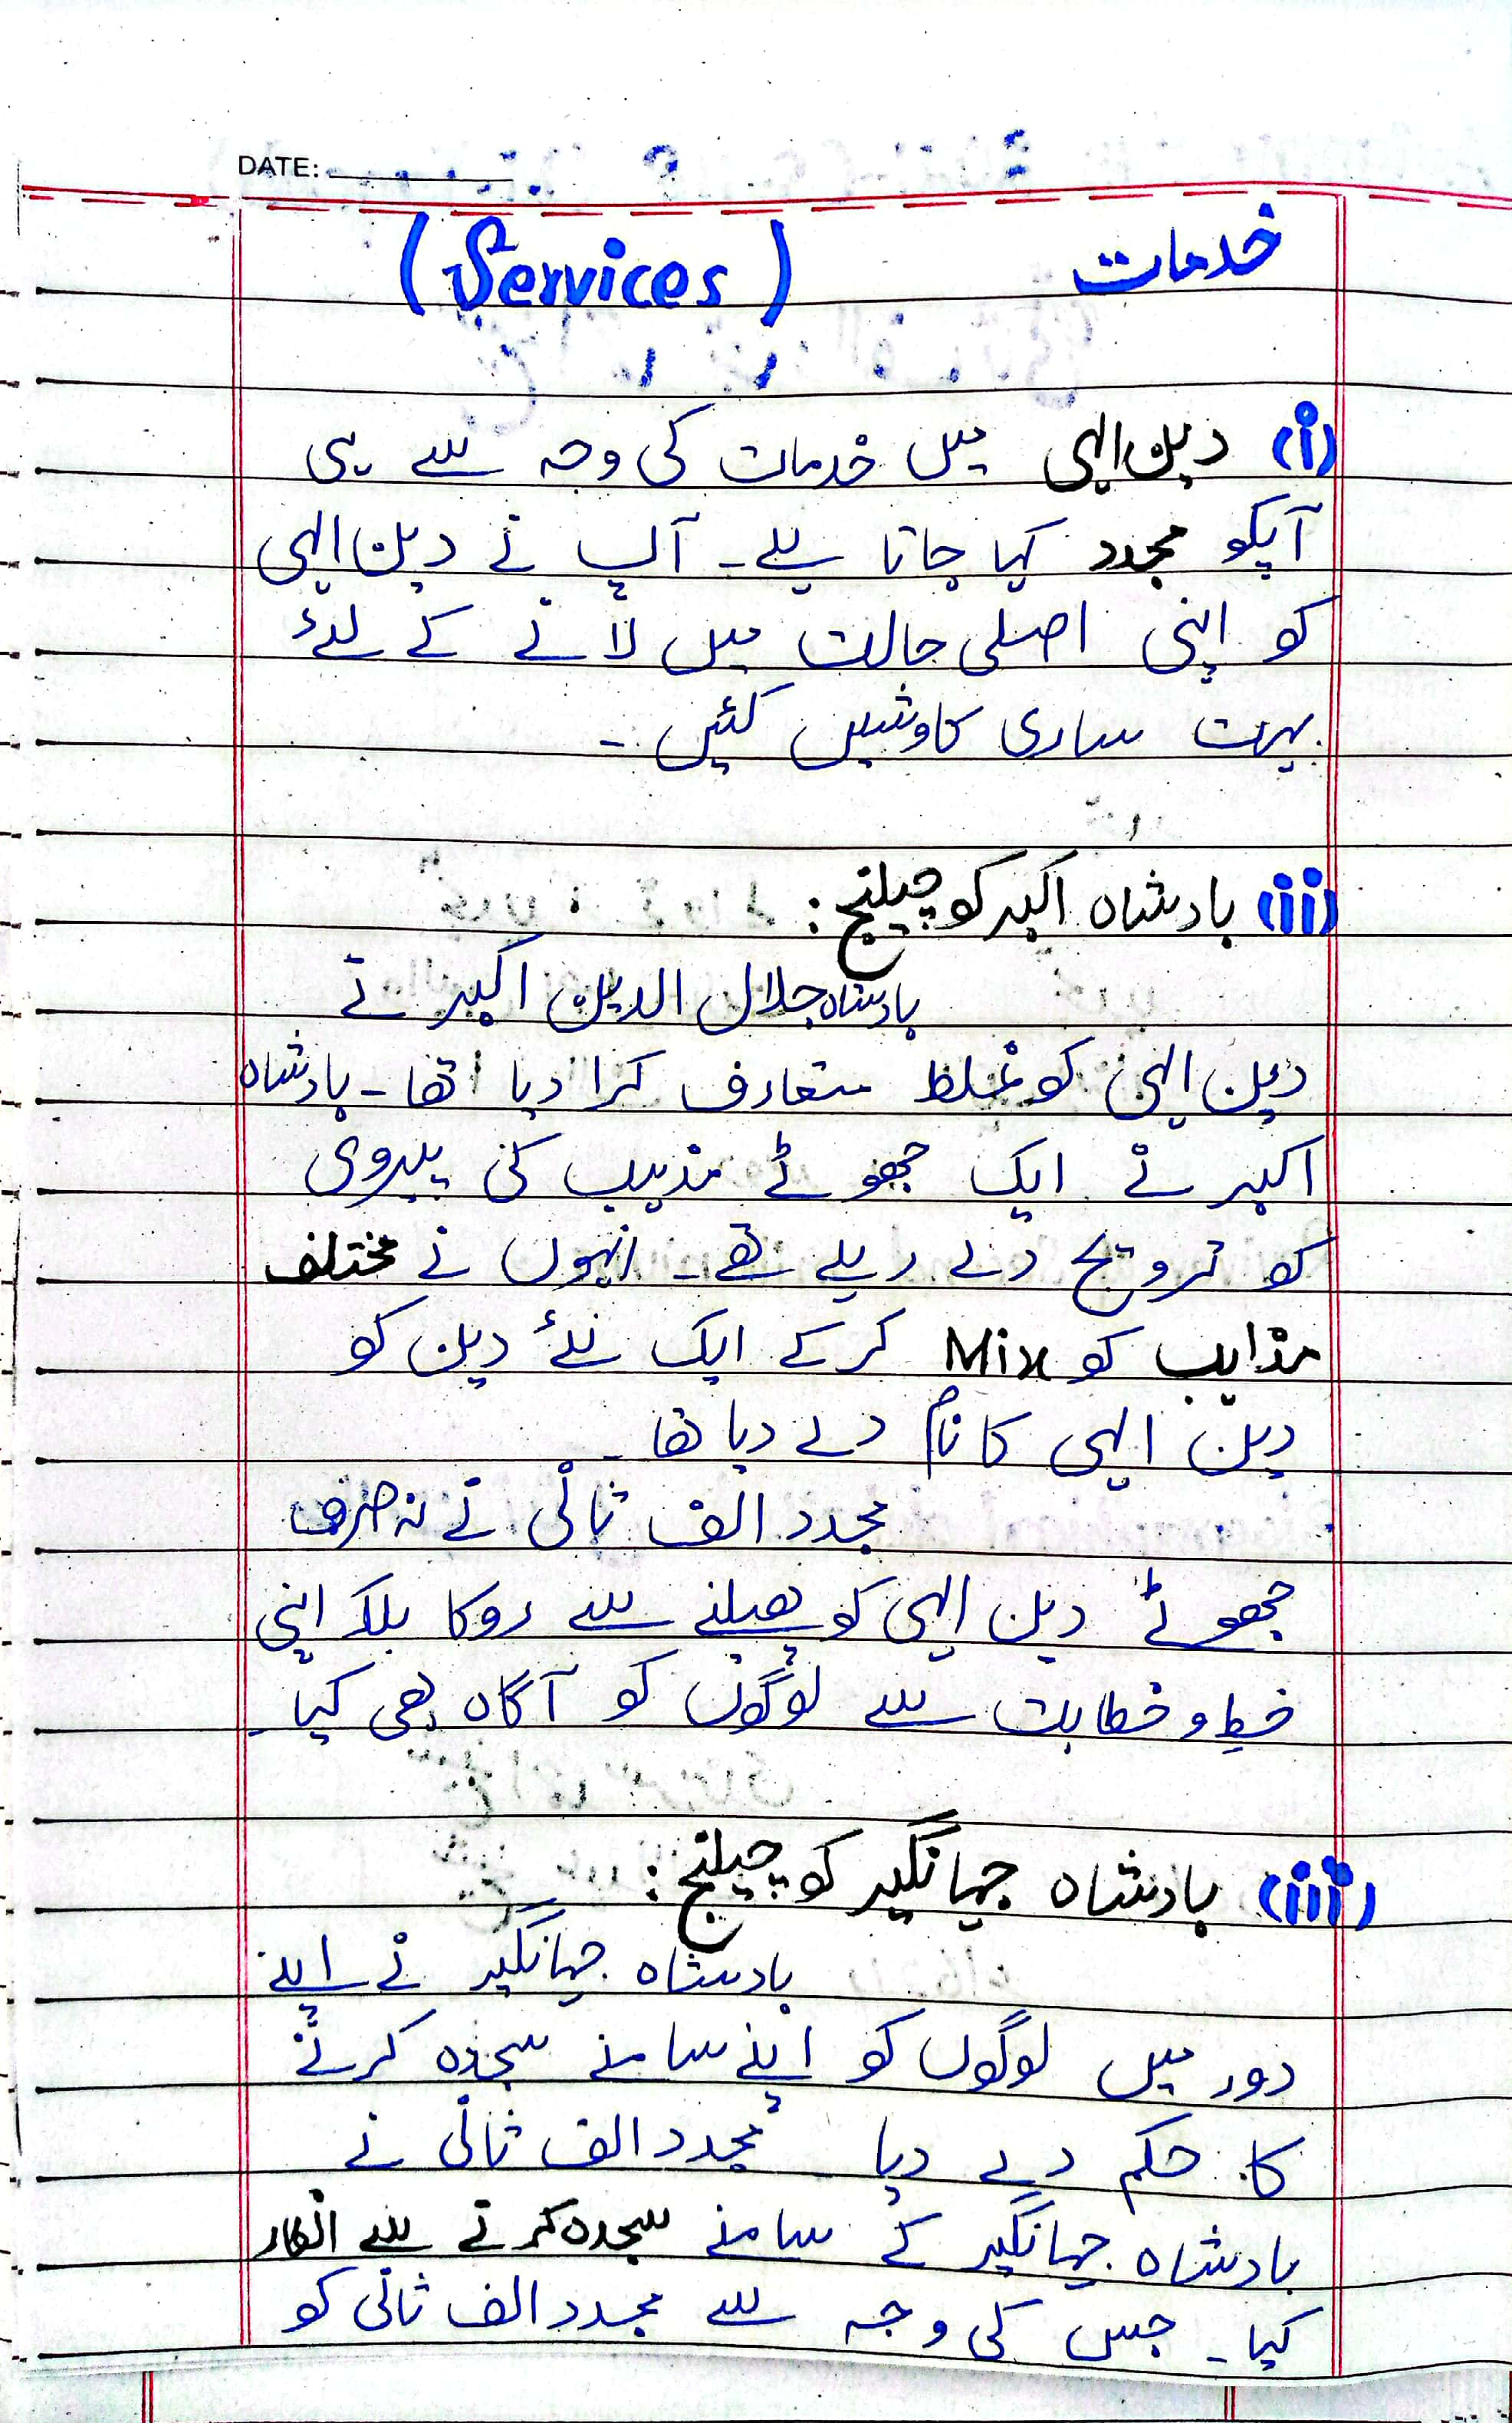 DATE:
خدمات (Services)
(i) دین الہی میں خدمات کی وجہ سے ہی
آپکو مجدد کہا جاتا ہے۔ آپ نے دین الہی
کو اپنی اصلی حالت میں لانے کے لئے
بہت ساری کاوشیں کئیں۔
(ii) بادشاہ اکبر کو چیلنج:
بادشاہ جلال الدین اکبر نے
دین الہی کو غلط متعارف کرا دیا تھا۔ بادشاہ
اکبر نے ایک جھوٹے مذہب کی پیروی
کو ترویج دے رہے تھے۔ انہوں نے مختلف
مذاہب کو Mix کر کے ایک نئے دین کو
دین الہی کا نام دے دیا تھا۔
مجدد الف ثانی نے نہ صرف
جھوٹے دین الہی کو پھیلنے سے روکا بلکہ اپنی
خط و خطابت سے لوگوں کو آگاہ بھی کیا۔
(iii) بادشاہ جہانگیر کو چیلنج:
بادشاہ جہانگیر نے اپنے
دور میں لوگوں کو اپنے سامنے سجدہ کرنے
کا حکم دے دیا۔ مجدد الف ثانی نے
بادشاہ جہانگیر کے سامنے سجدہ کرنے سے انکار
کیا۔ جس کی وجہ سے مجدد الف ثانی کو